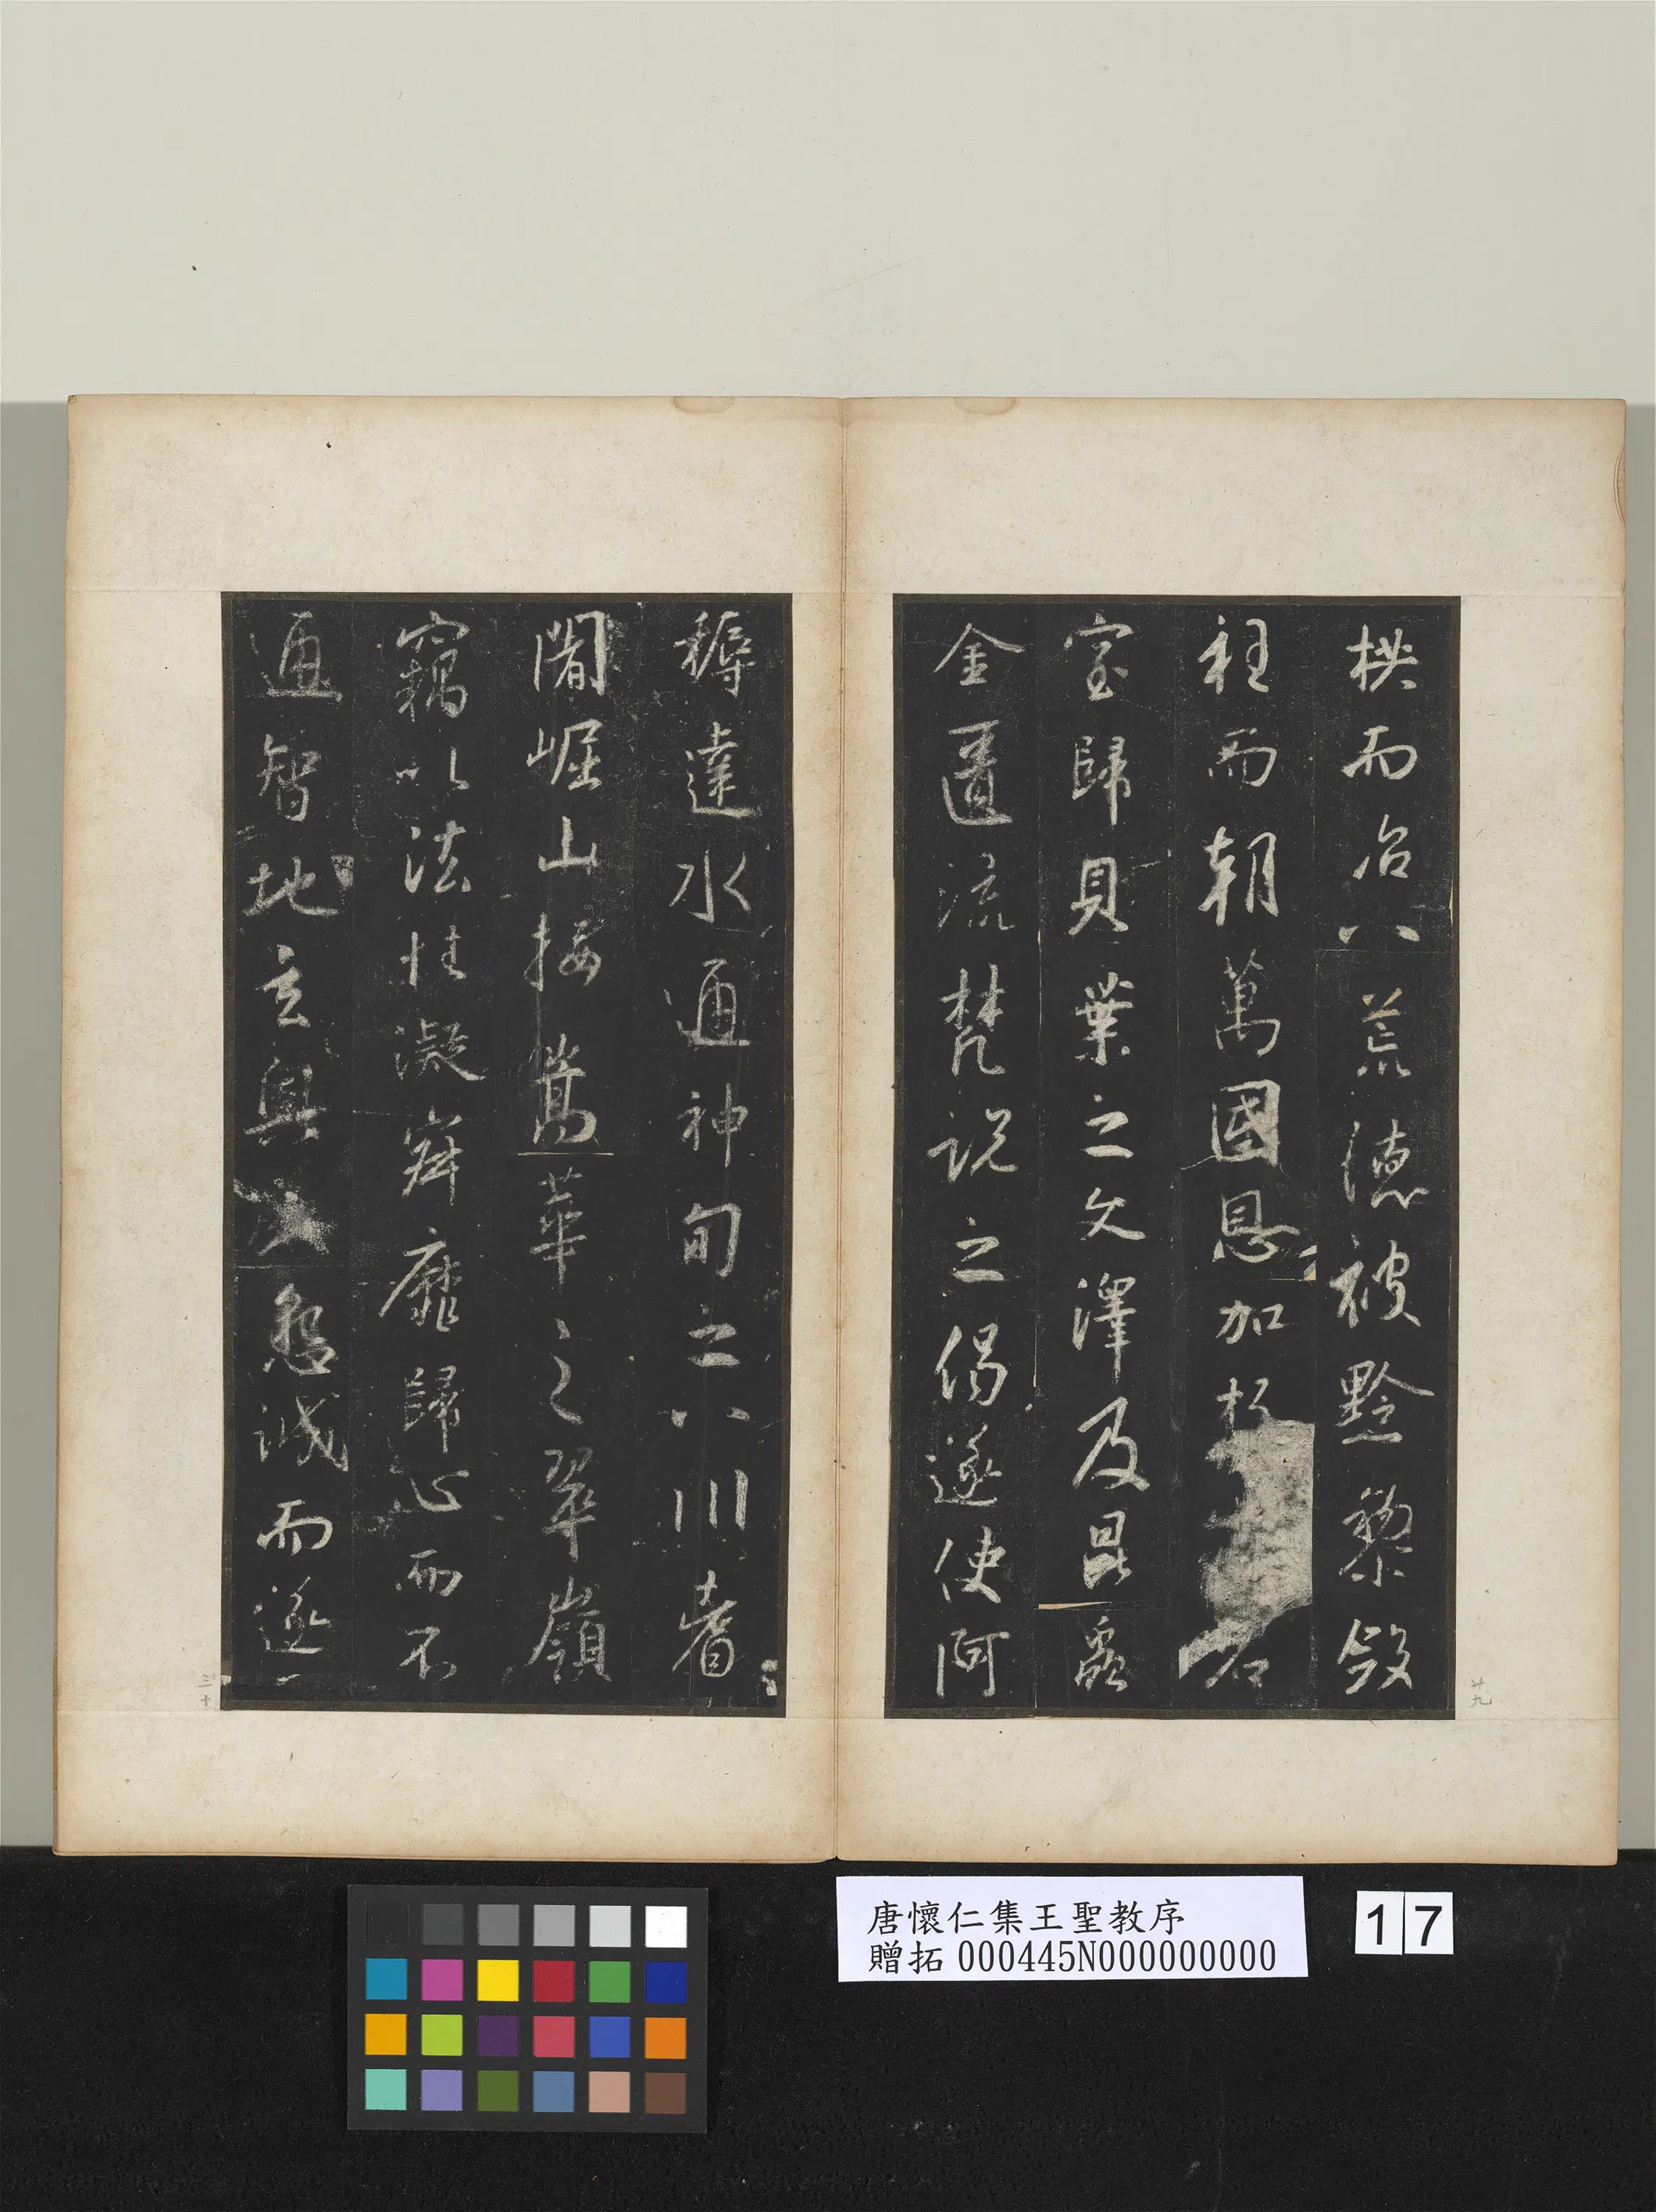 拱而治八荒德被黔黎斂
衽而朝萬國恩加朽石
室歸貝葉之文澤及昆蟲
金匱流梵說之偈遂使阿
廿九
耨達水通神甸之八川耆
闍崛山接嵩華之翠嶺
竊以法性凝寂靡歸心而不
通智地玄奧懇誠而遂
三十
唐懷仁集王聖教序
贈拓 000445N000000000
17